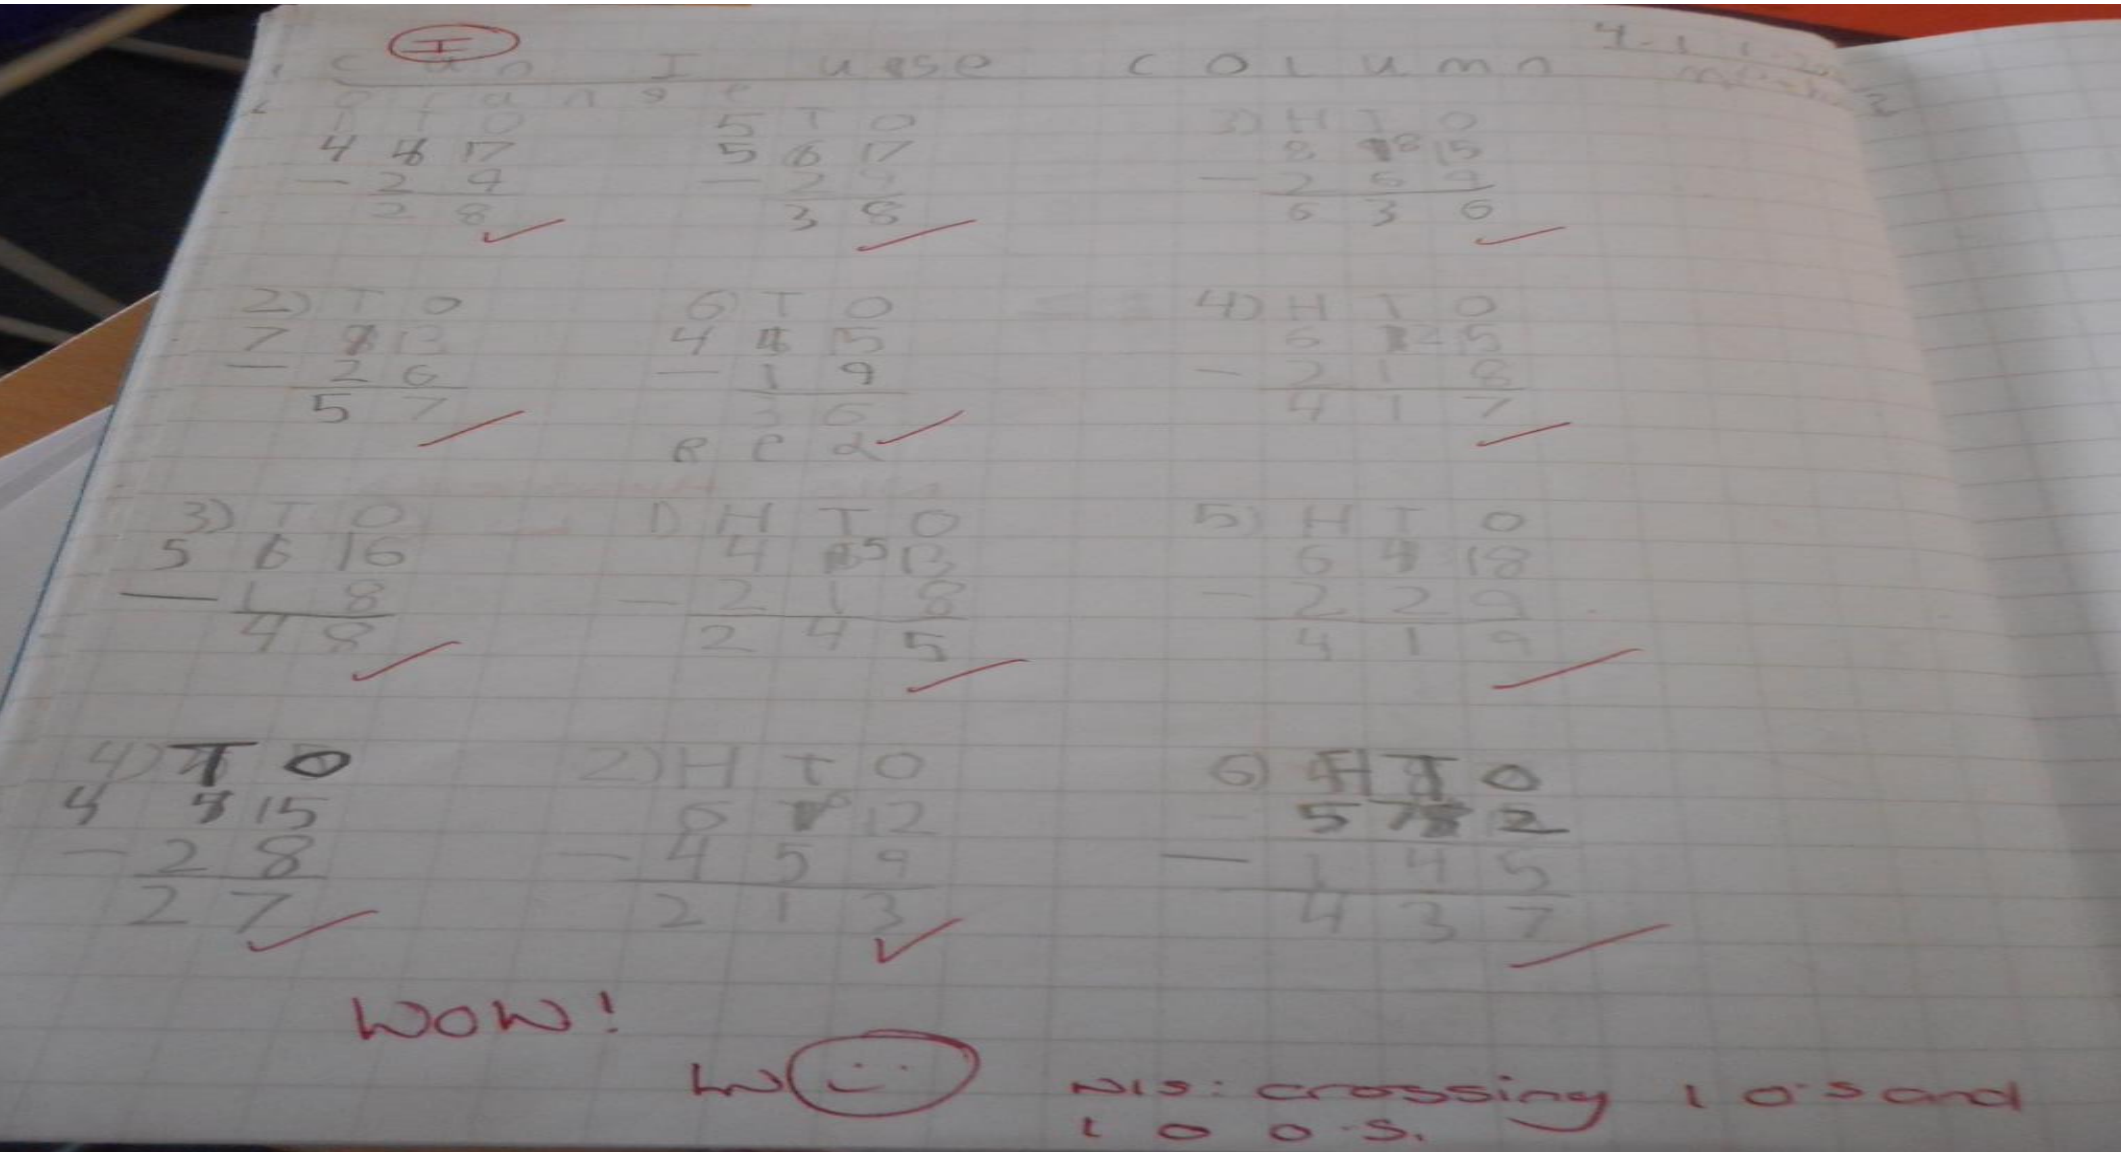 I
Can I use column
orange
T O
4 4 17
- 2 9
2 8
5 T O
5 6 17
- 2 9
3 8
3) H T O
8 9 8 15
- 2 5 9
6 3 6
2) T O
7 8 13
- 2 6
5 7
6) T O
4 4 15
- 1 9
3 6
4) H T O
6 2 15
- 2 1 8
4 1 7
Red
3) T O
5 6 16
- 1 8
4 8
1) H T O
4 6 5 13
- 2 1 8
2 4 5
5) H T O
6 4 18
- 2 2 9
4 1 9
4) T O
4 5 15
- 2 8
2 7
2) H T O
6 7 6 12
- 4 5 9
2 1 3
6) H T O
5 7 8 2
- 1 4 5
4 3 7
WOW!
N/S: crossing 10's and
100's.